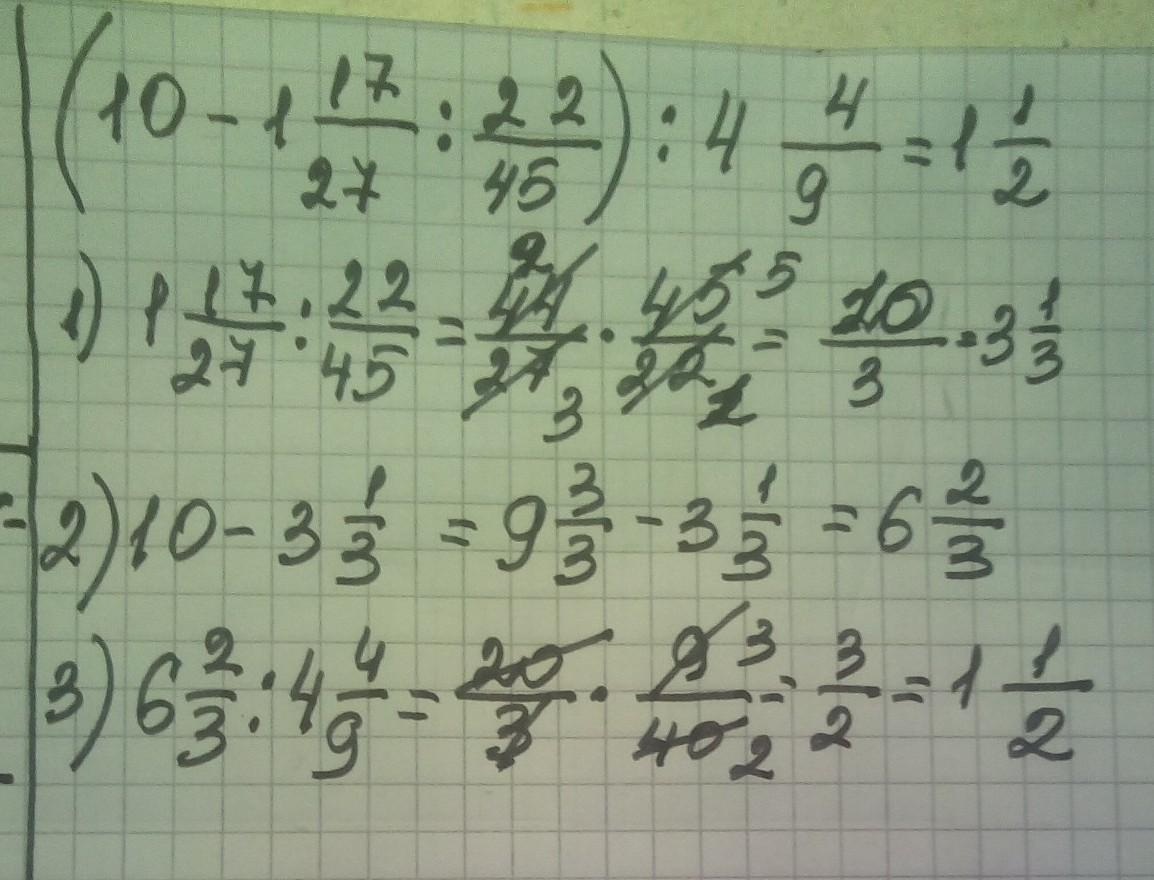 (10 - 1 17/27 : 22/45) : 4 4/9 = 1 1/2
1) 1 17/27 : 22/45 = 44/27 2 3 · 45/22 5 1 = 10/3 = 3 1/3
2) 10 - 3 1/3 = 9 3/3 - 3 1/3 = 6 2/3
3) 6 2/3 : 4 4/9 = 20/3 · 9/40 3 2 = 3/2 = 1 1/2